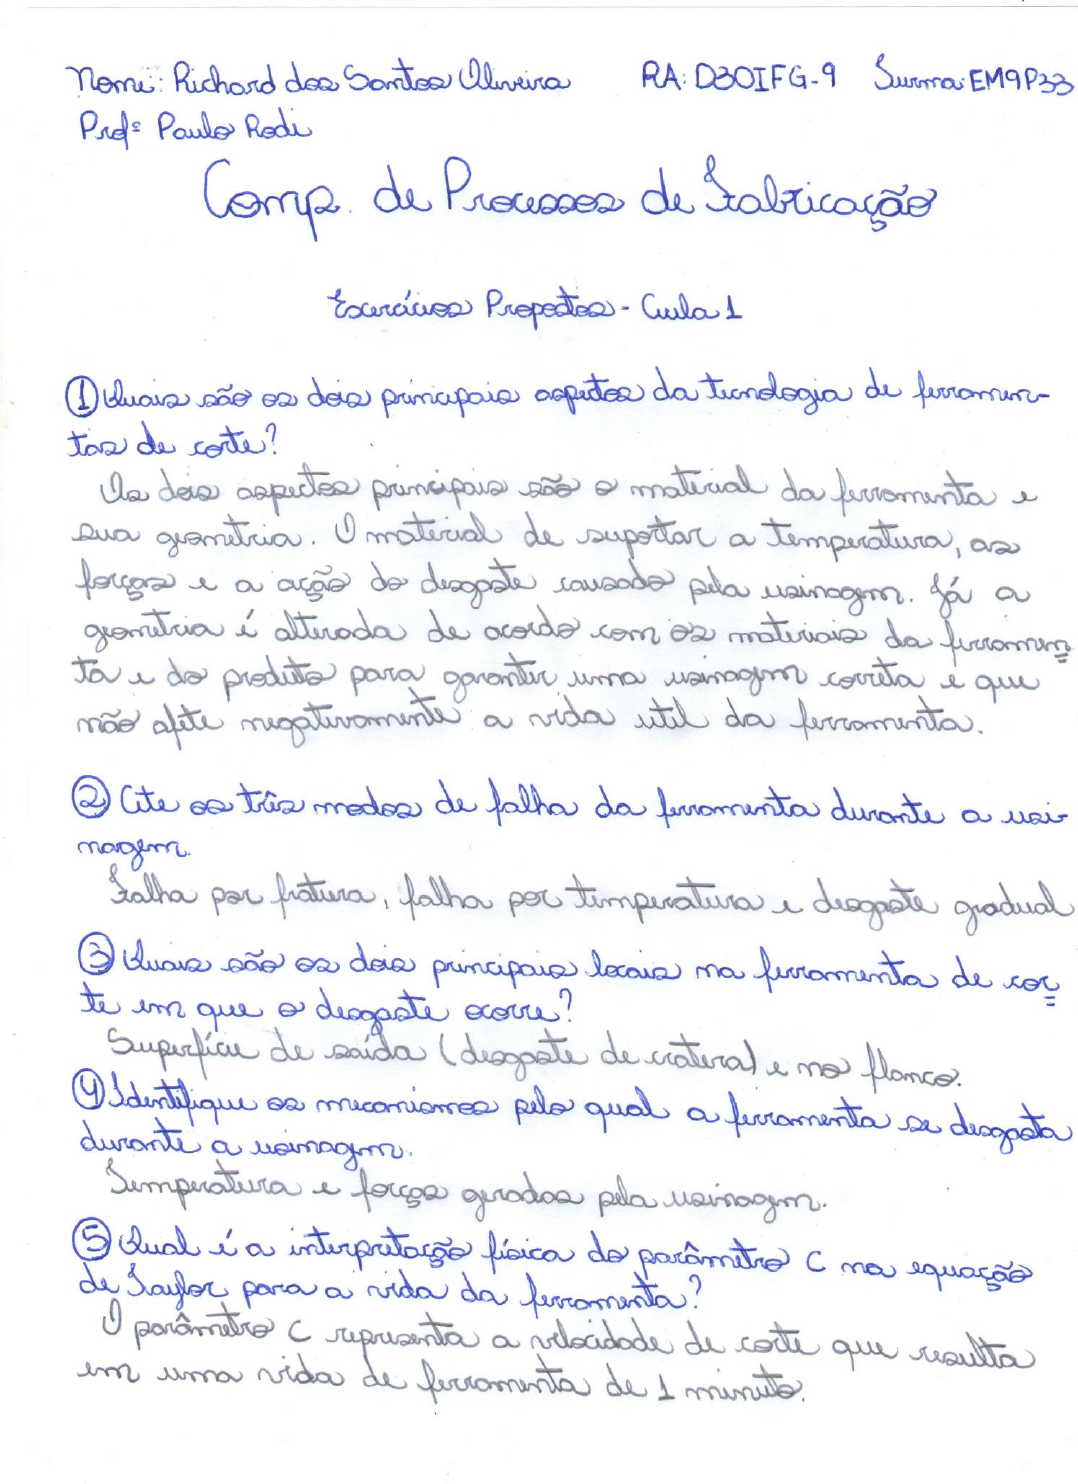 Nome: Richard dos Santos Oliveira RA: D30IFG-9 Turma: EM9P33
Profº Paulo Rodi
Comp. de Processos de Fabricação
Exercícios Propostos - Aula 1
① Quais são os dois principais aspectos da tecnologia de ferramen-
tas de corte?
Os dois aspectos principais são o material da ferramenta e
sua geometria. O material de suportar a temperatura, as
forças e a ação do desgaste causado pela usinagem. Já a
geometria é alterada de acordo com os materiais da ferramen
ta e do produto para garantir uma usinagem correta e que
não afete negativamente a vida util da ferramenta.
② Cite os três modos de falha da ferramenta durante a usi-
nagem.
Falha por fratura, falha por temperatura e desgaste gradual
③ Quais são os dois principais locais na ferramenta de cor
te em que o desgaste ocorre?
Superfície de saída (desgaste de cratera) e no flanco.
④ Identifique os mecanismos pelo qual a ferramenta se desgasta
durante a usinagem.
Temperatura e forças geradas pela usinagem.
⑤ Qual é a interpretação física do parâmetro C na equação
de Taylor para a vida da ferramenta?
O parâmetro C representa a velocidade de corte que resulta
em uma vida de ferramenta de 1 minuto.